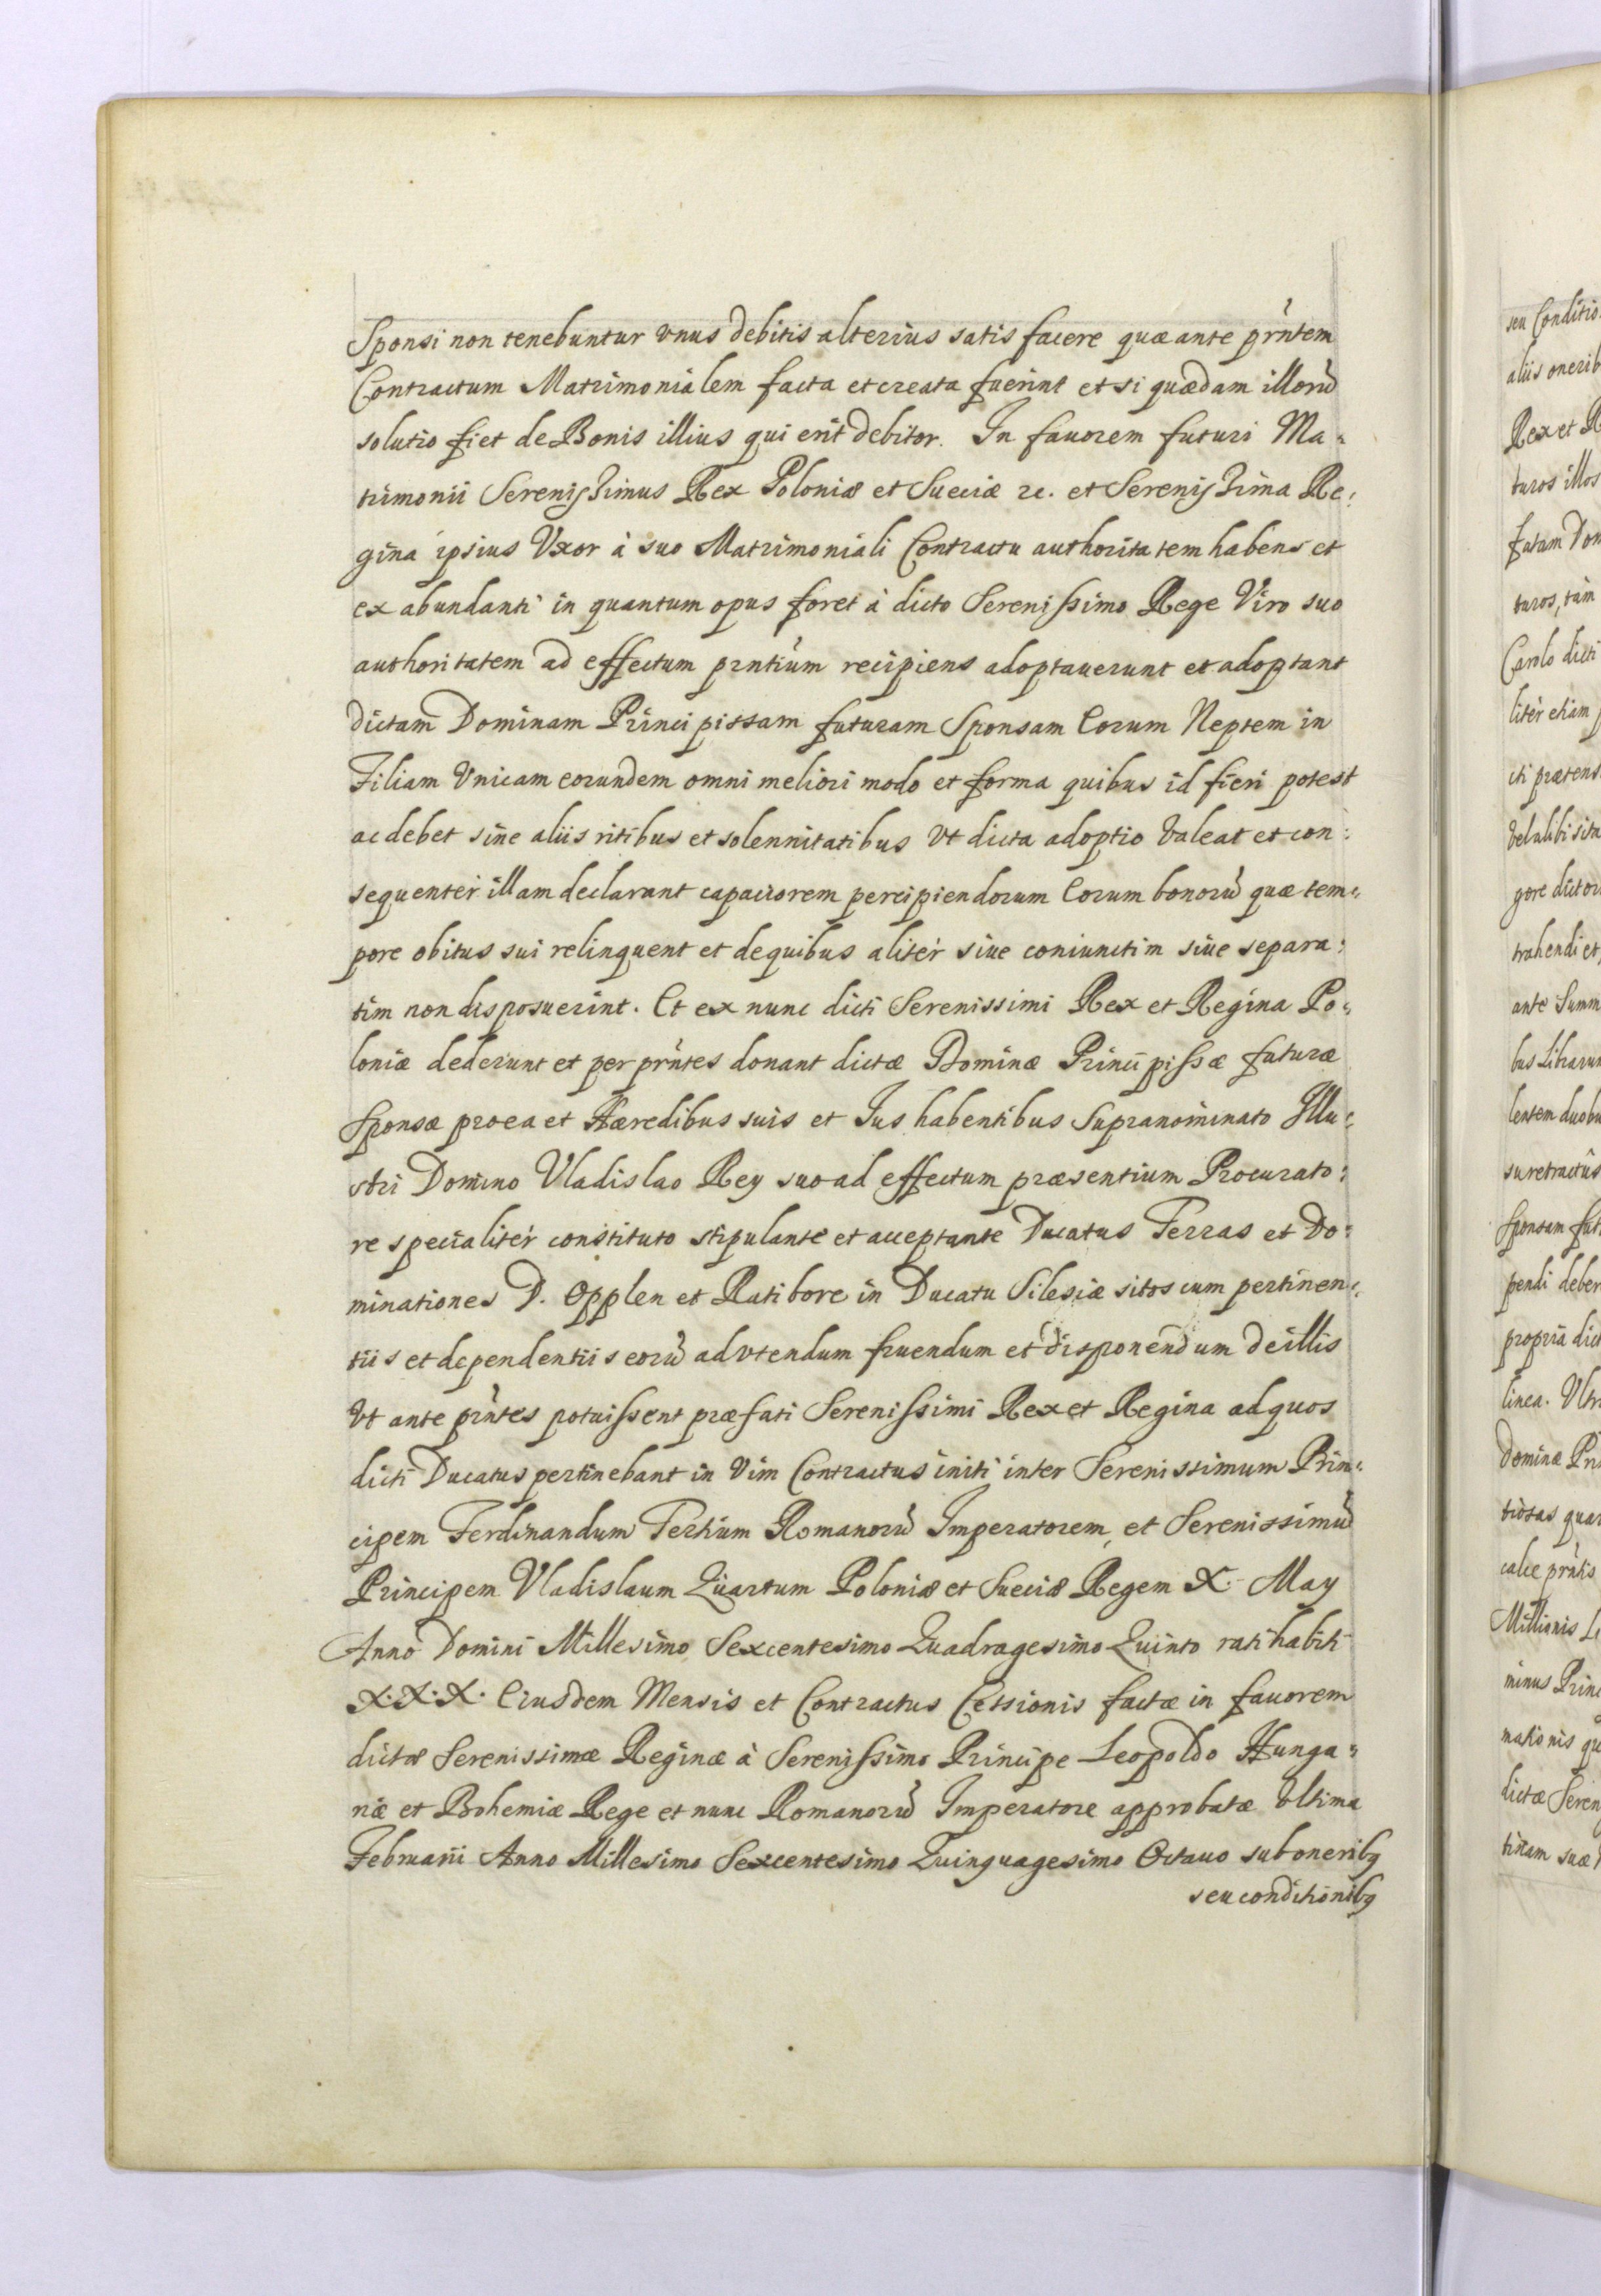 Sponsi non tenebuntur vnus debitis alterius satis facere quæ ante prńtem
Contractum Matrimonialem facta et creata fuerint et si quædam illorũ
solutio fiet de Bonis illius qui erit debitor. In fauorem futuri Ma=
trimonii Serenissimus Rex Poloniæ et Sueciæ &c. et Serenissima Re=
gina ipsius Vxor à suo Matrimoniali Contractu authoritatem habens et
ex abundanti in quantum opus foret à dicto Serenissimo Rege Viro suo
authoritatem ad effectum prntium recipiens adoptauerunt et adoptant
dictam Dominam Principissam futuram Sponsam Eorum Neptem in
Filiam Vnicam eorundem omni meliori modo et forma quibus id fieri potest
ac debet sine aliis ritibus et solennitatibus Vt dicta adoptio Valeat et con=
sequentèr illam declarant capaciorem percipiendorum Eorum bonorũ quæ tem=
pore obitus sui relinquent et de quibus alitèr siue coniunctim siue separa=
tim non disposuerint. Et ex nunc dicti Serenissimi Rex et Regina Po=
loniæ dederunt et per prńtes donant dictæ Dominæ Principissæ futuræ
Sponsæ pro ea et Hæredibus suis et Ius habentibus Supranominato Illu=
stri Domino Vladislao Rey suo ad effectum præsentium Procurato=
re specialitèr constituto stipulante et acceptante Ducatus Terras et Do=
minationes D. Opplen et Ratibore in Ducatu Silesiæ sitos cum pertinen=
tiis et dependentiis eorũ ad vtendum fruendum et disponendum de illis
Vt ante prńtes potuissent præfati Serenissimi Rex et Regina ad quos
dicti Ducatus pertinebant in Vim Contractus initi inter Serenissimum Prin=
cipem Ferdinandum Tertium Romanorũ Imperatorem, et Serenissimũ
Principem Vladislaum Quartum Poloniæ et Sueciæ Regem X. May
Anno Domini Millesimo Sexcentesimo Quadragesimo Quinto ratihabiti
X.X.X. Eiusdem Mensis et Contractus Cessionis factæ in fauorem
dictæ Serenissimæ Reginæ à Serenissimo Principe Leopoldo Hunga=
riæ et Bohemiæ Rege et nunc Romanorũ Imperatore approbatæ Vltima
Februarii Anno Millesimo Sexcentesimo Quinquagesimo Octauo sub oneribq
seu conditionibq
seu Conditio
aliis onerib
Rex et R
turos illos
fatam Dom
turos, tàm
Carolo dicti
litèr etiam p
cti prætens
Vel alibi sita
gore dictor
trahendi et
ante Summ
bus Librarum
lentem duobu
su retractûs
Sponsam fut
pendi deber
propria dict
linea. Vltr
Dominæ Pri
tiosas quar
calce prńtis
Millionis Li
minus Princ
mationis qu
dictæ Seren
tinam suæ